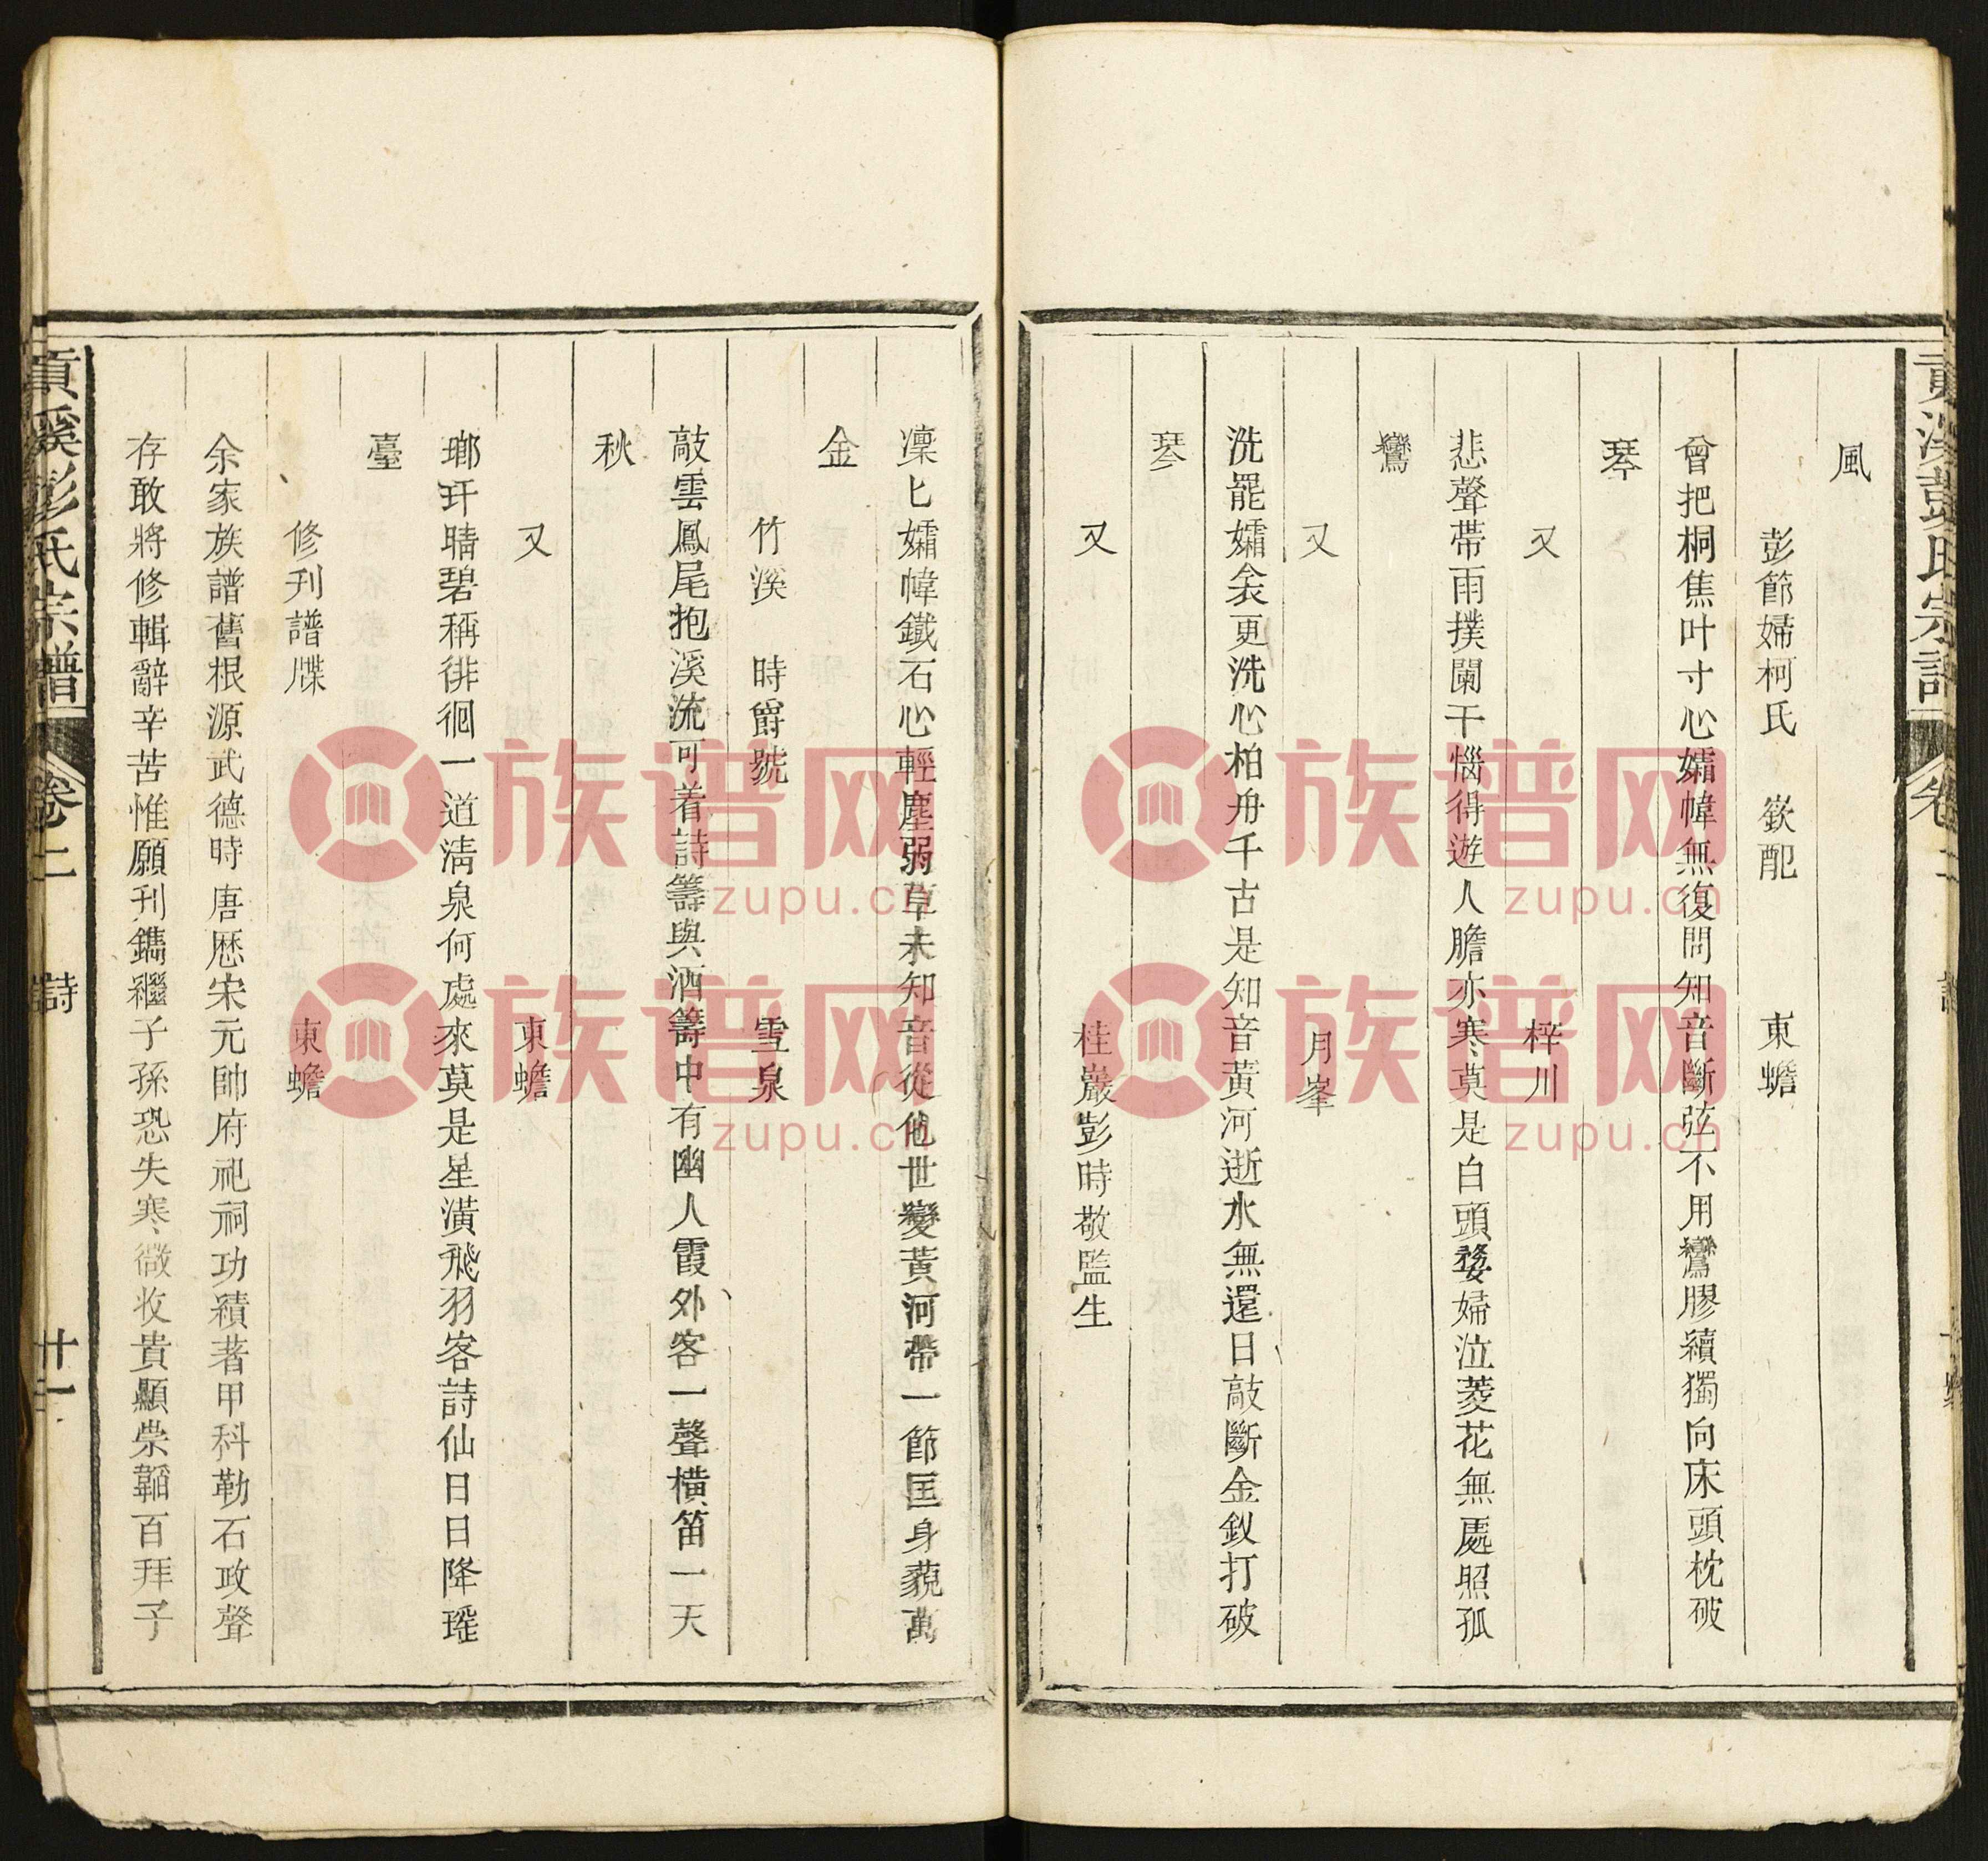 風
彭節婦柯氏 嶔配 東蟾
曾把桐焦叶寸心孀幃無復問知音斷弦不用鸞膠續獨向床頭枕破
琴
又 梓川
悲聲帶雨撲闌干惱得遊人膽亦寒莫是白頭婺婦泣菱花無處照孤
鸞
又 月峯
洗罷孀衾更洗心柏舟千古是知音黃河逝水無還日敲斷金釵打破
琴
又 桂巖彭時敬監生
凜匕孀幃鐵石心輕塵弱草未知音從他世變黃河帶一節匡身藐萬
金
竹溪 時爵號 雪泉
敲雲鳳尾抱溪流可着詩籌與酒籌中有幽人霞外客一聲橫笛一天
秋
又 東蟾
瑯玕晴碧稱徘徊一道清泉何處來莫是星潢飛羽客詩仙日日降瑤
臺
修刊譜牒 東蟾
余家族譜舊根源武德時唐歷宋元帥府祀祠功績著甲科勒石政聲
存敢將修輯辭辛苦惟願刊鐫繼子孫恐失寒微收貴顯柴韜百拜子
貢溪彭氏宗譜 卷二 詩 十一
族谱网
zupu.cn
族谱网
zupu.cn
族谱网
zupu.cn
族谱网
zupu.cn